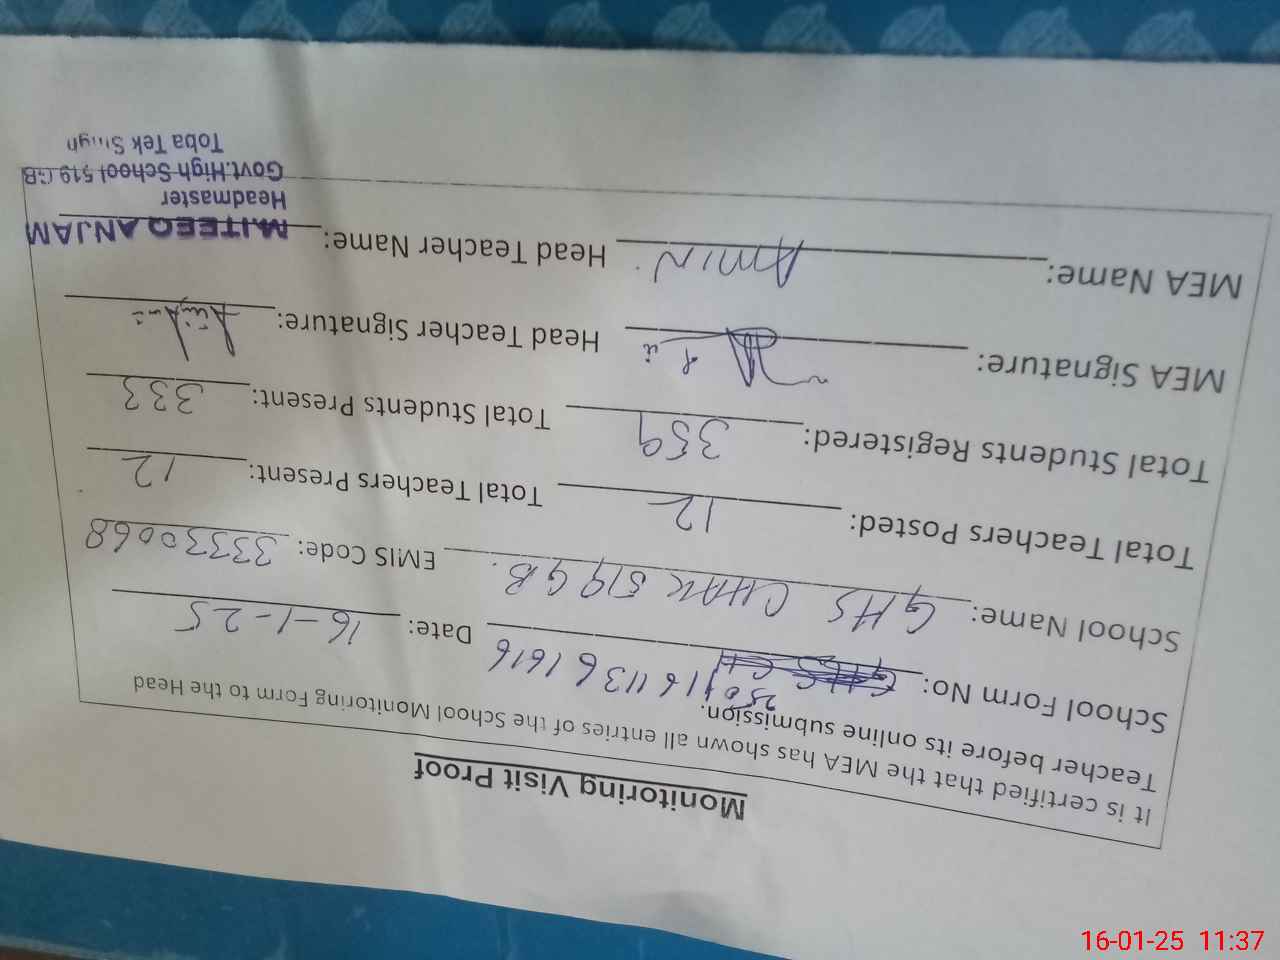 Monitoring Visit Proof
It is certified that the MEA has shown all entries of the School Monitoring Form to the Head
Teacher before its online submission.
School Form No: 25011611361616 Date: 16-1-25
School Name: GHS CHAK 519 GB. EMIS Code: 33330068
Total Teachers Posted: 12 Total Teachers Present: 12
Total Students Registered: 359 Total Students Present: 333
MEA Signature: Head Teacher Signature:
MEA Name: AMIN Head Teacher Name: M.ITEEQ ANJAM
Headmaster
Govt.High School 519 GB
Toba Tek Singh
16-01-25 11:37